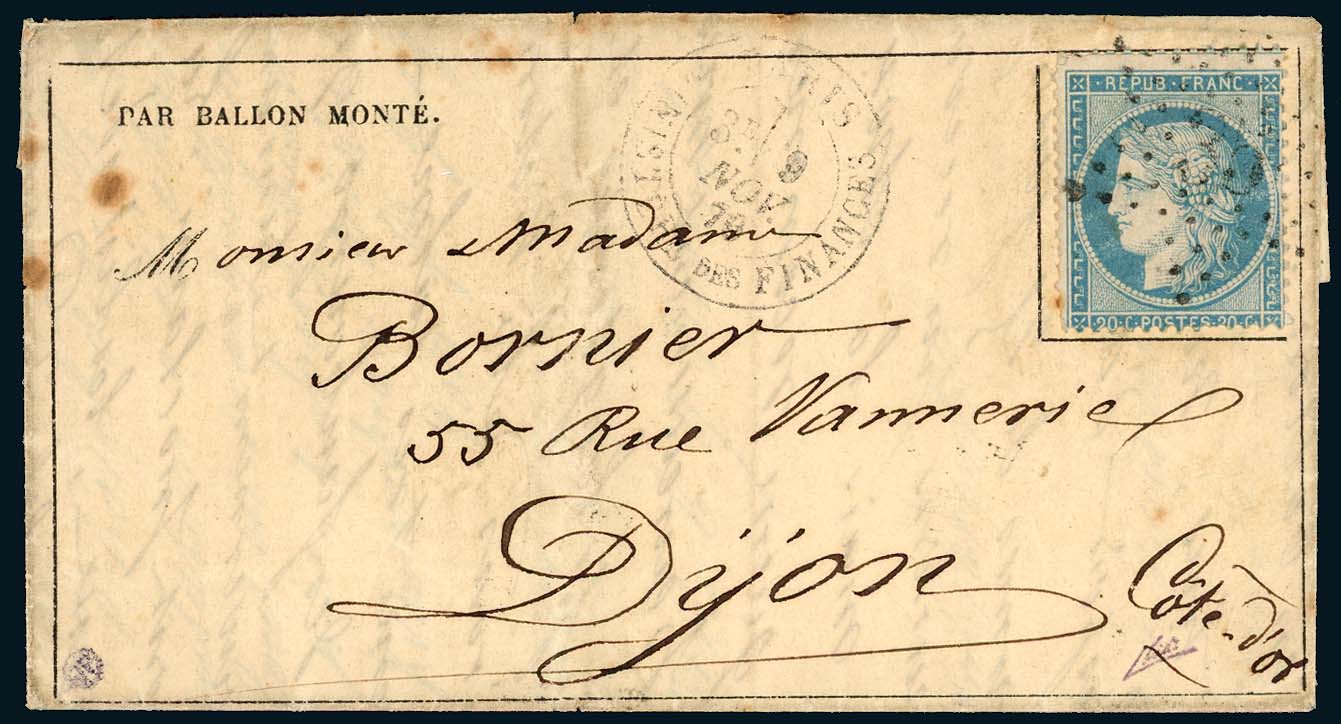 PAR BALLON MONTÉ.
PARIS
5E/
9
NOV.
70
MIN. DES FINANCES
REPUB·FRANC·
20·C·POSTES·20·C
Monsieur et Madame
Bornier
55 Rue Vannerie
Dijon
Côte-d'or